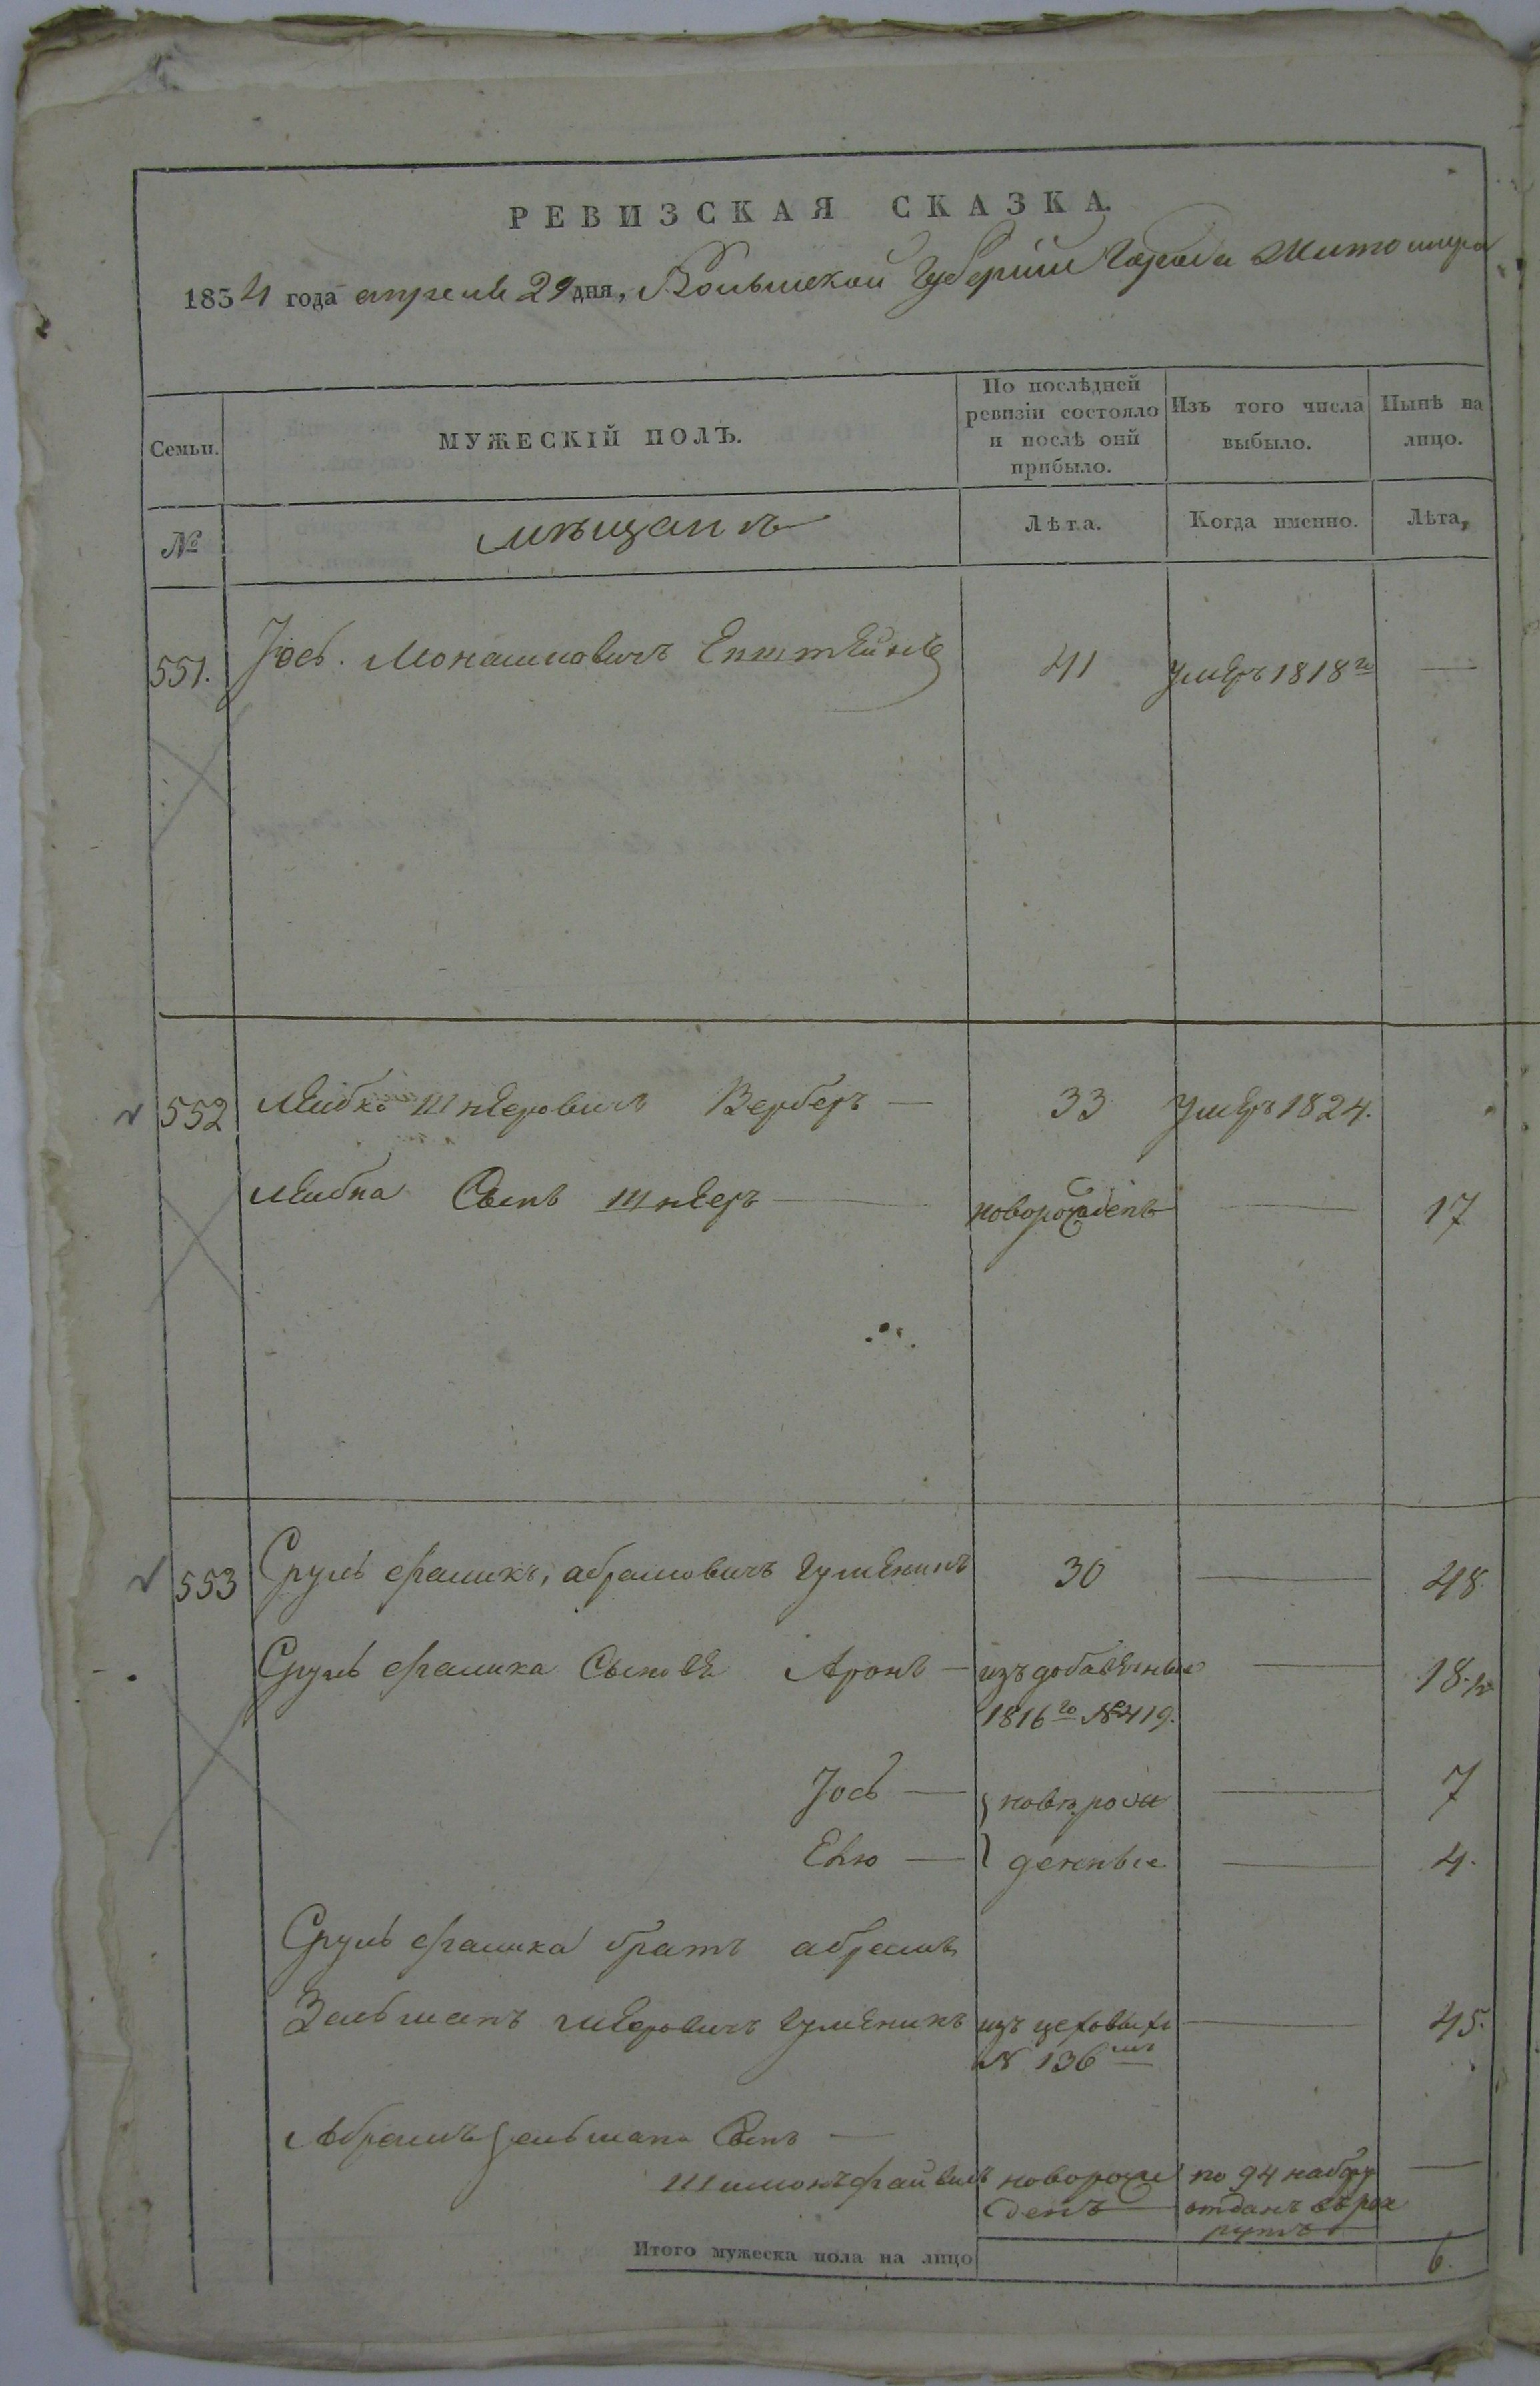 РЕВИЗСКАЯ СКАЗКА.
1834 года апреля 29 дня, Волынской Губернiи Города Житомира
Семьи. МУЖЕСКIЙ ПОЛЪ. По послѣдней ревизiи состояло и послѣ оной прибыло. Изъ того числа выбыло. Нынѣ на лицо.
№ мѣщанъ Лѣта. Когда именно. Лѣта,
551. Iось Монашковичъ 41 умеръ 1818го —
552 Лейбко Шнеровичъ Верберъ — 33 умеръ 1824.
Лейбка Сынъ Шнеръ — новорожденъ — 17
553 Сруль Фаликъ, абрамовичъ Гуменикъ 30 — 48
Сруль Фалика Сыновя Аронъ — изъ добавочныхъ — 18.½
1816го № 419.
Iось — новорож — 7
Ельо — денные — 4.
Сруль Фалика братъ абрамъ
Зельманъ Меровичъ Гуменикъ изъ цеховыхъ — 45.
N 136мъ
Абрамъ Зельмана Сынъ —
Шимонъ Файвиль новорож по 94 набору —
денъ отданъ въ рек
рутъ
Итого мужеска пола на лицо 6.